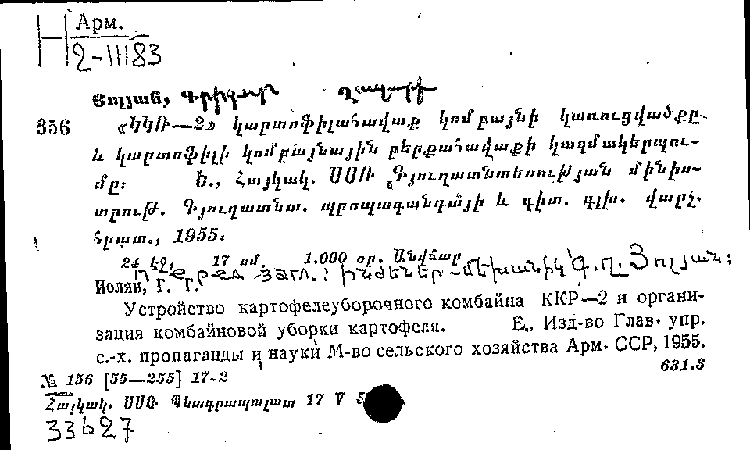 Арм.
2-11183
Յոլյան, Գրիգոր Ղազարի
356 «ԿԿՌ—2» կարտոֆիլահավաք կոմբայնի կառուցվածքը
և կարտոֆիլի կոմբայնային բերքահավաքի կազմակերպու-
մը: Ե., Հայկակ. ՍՍՌ Գյուղատնտեսության մինիս-
տրութ. Գյուղատնտ. պրոպագանդայի և գիտ. գլխ. վարչ.
հրատ., 1955.
24 էջ, 17 սմ. 1.000 օր. Անվճար
ինժեներ-մեխանիկ Գ. Ղ. Յոլյան:
Иолян, Г. Г.
Устройство картофелеуборочного комбайна ККР—2 и органи-
зация комбайновой уборки картофеля. Е., Изд-во Глав. упр.
с.-х. пропаганды и науки М-во сельского хозяйства Арм. ССР, 1955.
631.3
№ 156 [55—255] 17-2
Հայկակ. ՍՍՌ Պետգրապալատ 17 V 5
33627